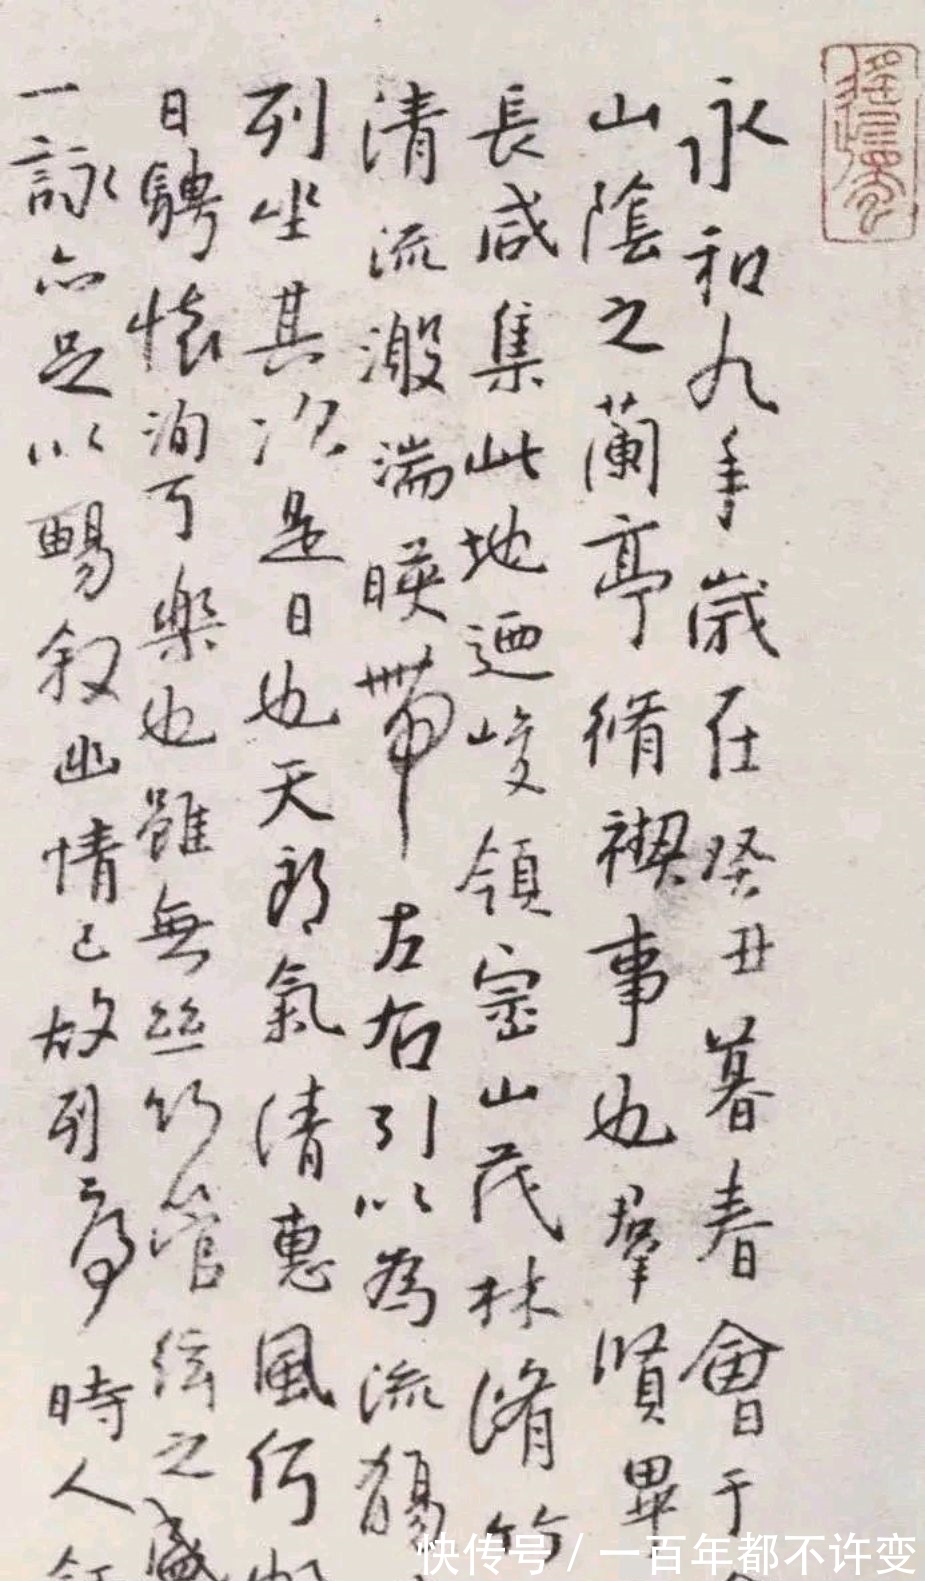 永和九年歲在癸丑暮春會于
山陰之蘭亭脩禊事也羣賢畢
長咸集此地迺峻領崇山茂林脩竹
清流激湍暎帶左右引以為流觴
列坐其次是日也天朗氣清惠風何
日騁懷洵可樂也雖無絲竹管弦之盛
一詠亦足以暢敘幽情已故列序時人
快传号/一百年都不许变